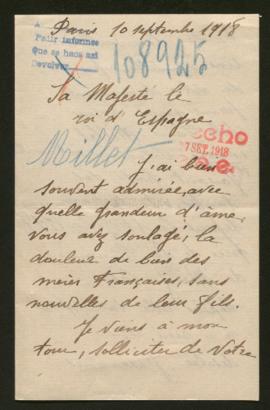 Paris 10 septembre 1918
Pedir informes
que se haga
Devolver
108925
Sa Majesté le
roi d'Espagne
echo
7 SET. 1918
Millet
J'ai bien
souvent admirée, avec
quelle grandeur d'âme,
vous avez soulagé, la
douleur de bien des
mères Françaises, sans
nouvelles de leur fils.
Je viens à mon
tour, solliciter de Votre